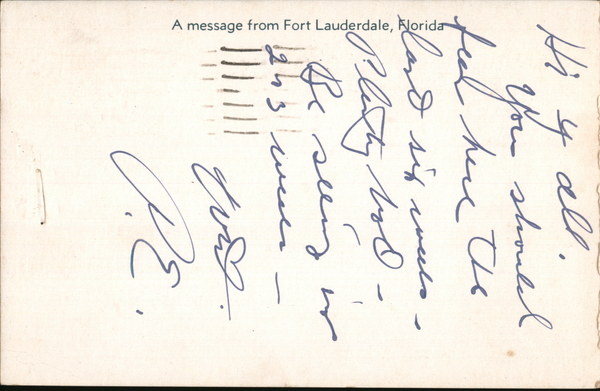 A message from Fort Lauderdale, Florida
Hi y all.
You should
feel here the
last six weeks -
Plenty hot -
Be seeing you
2 or 3 weeks -
P.E.